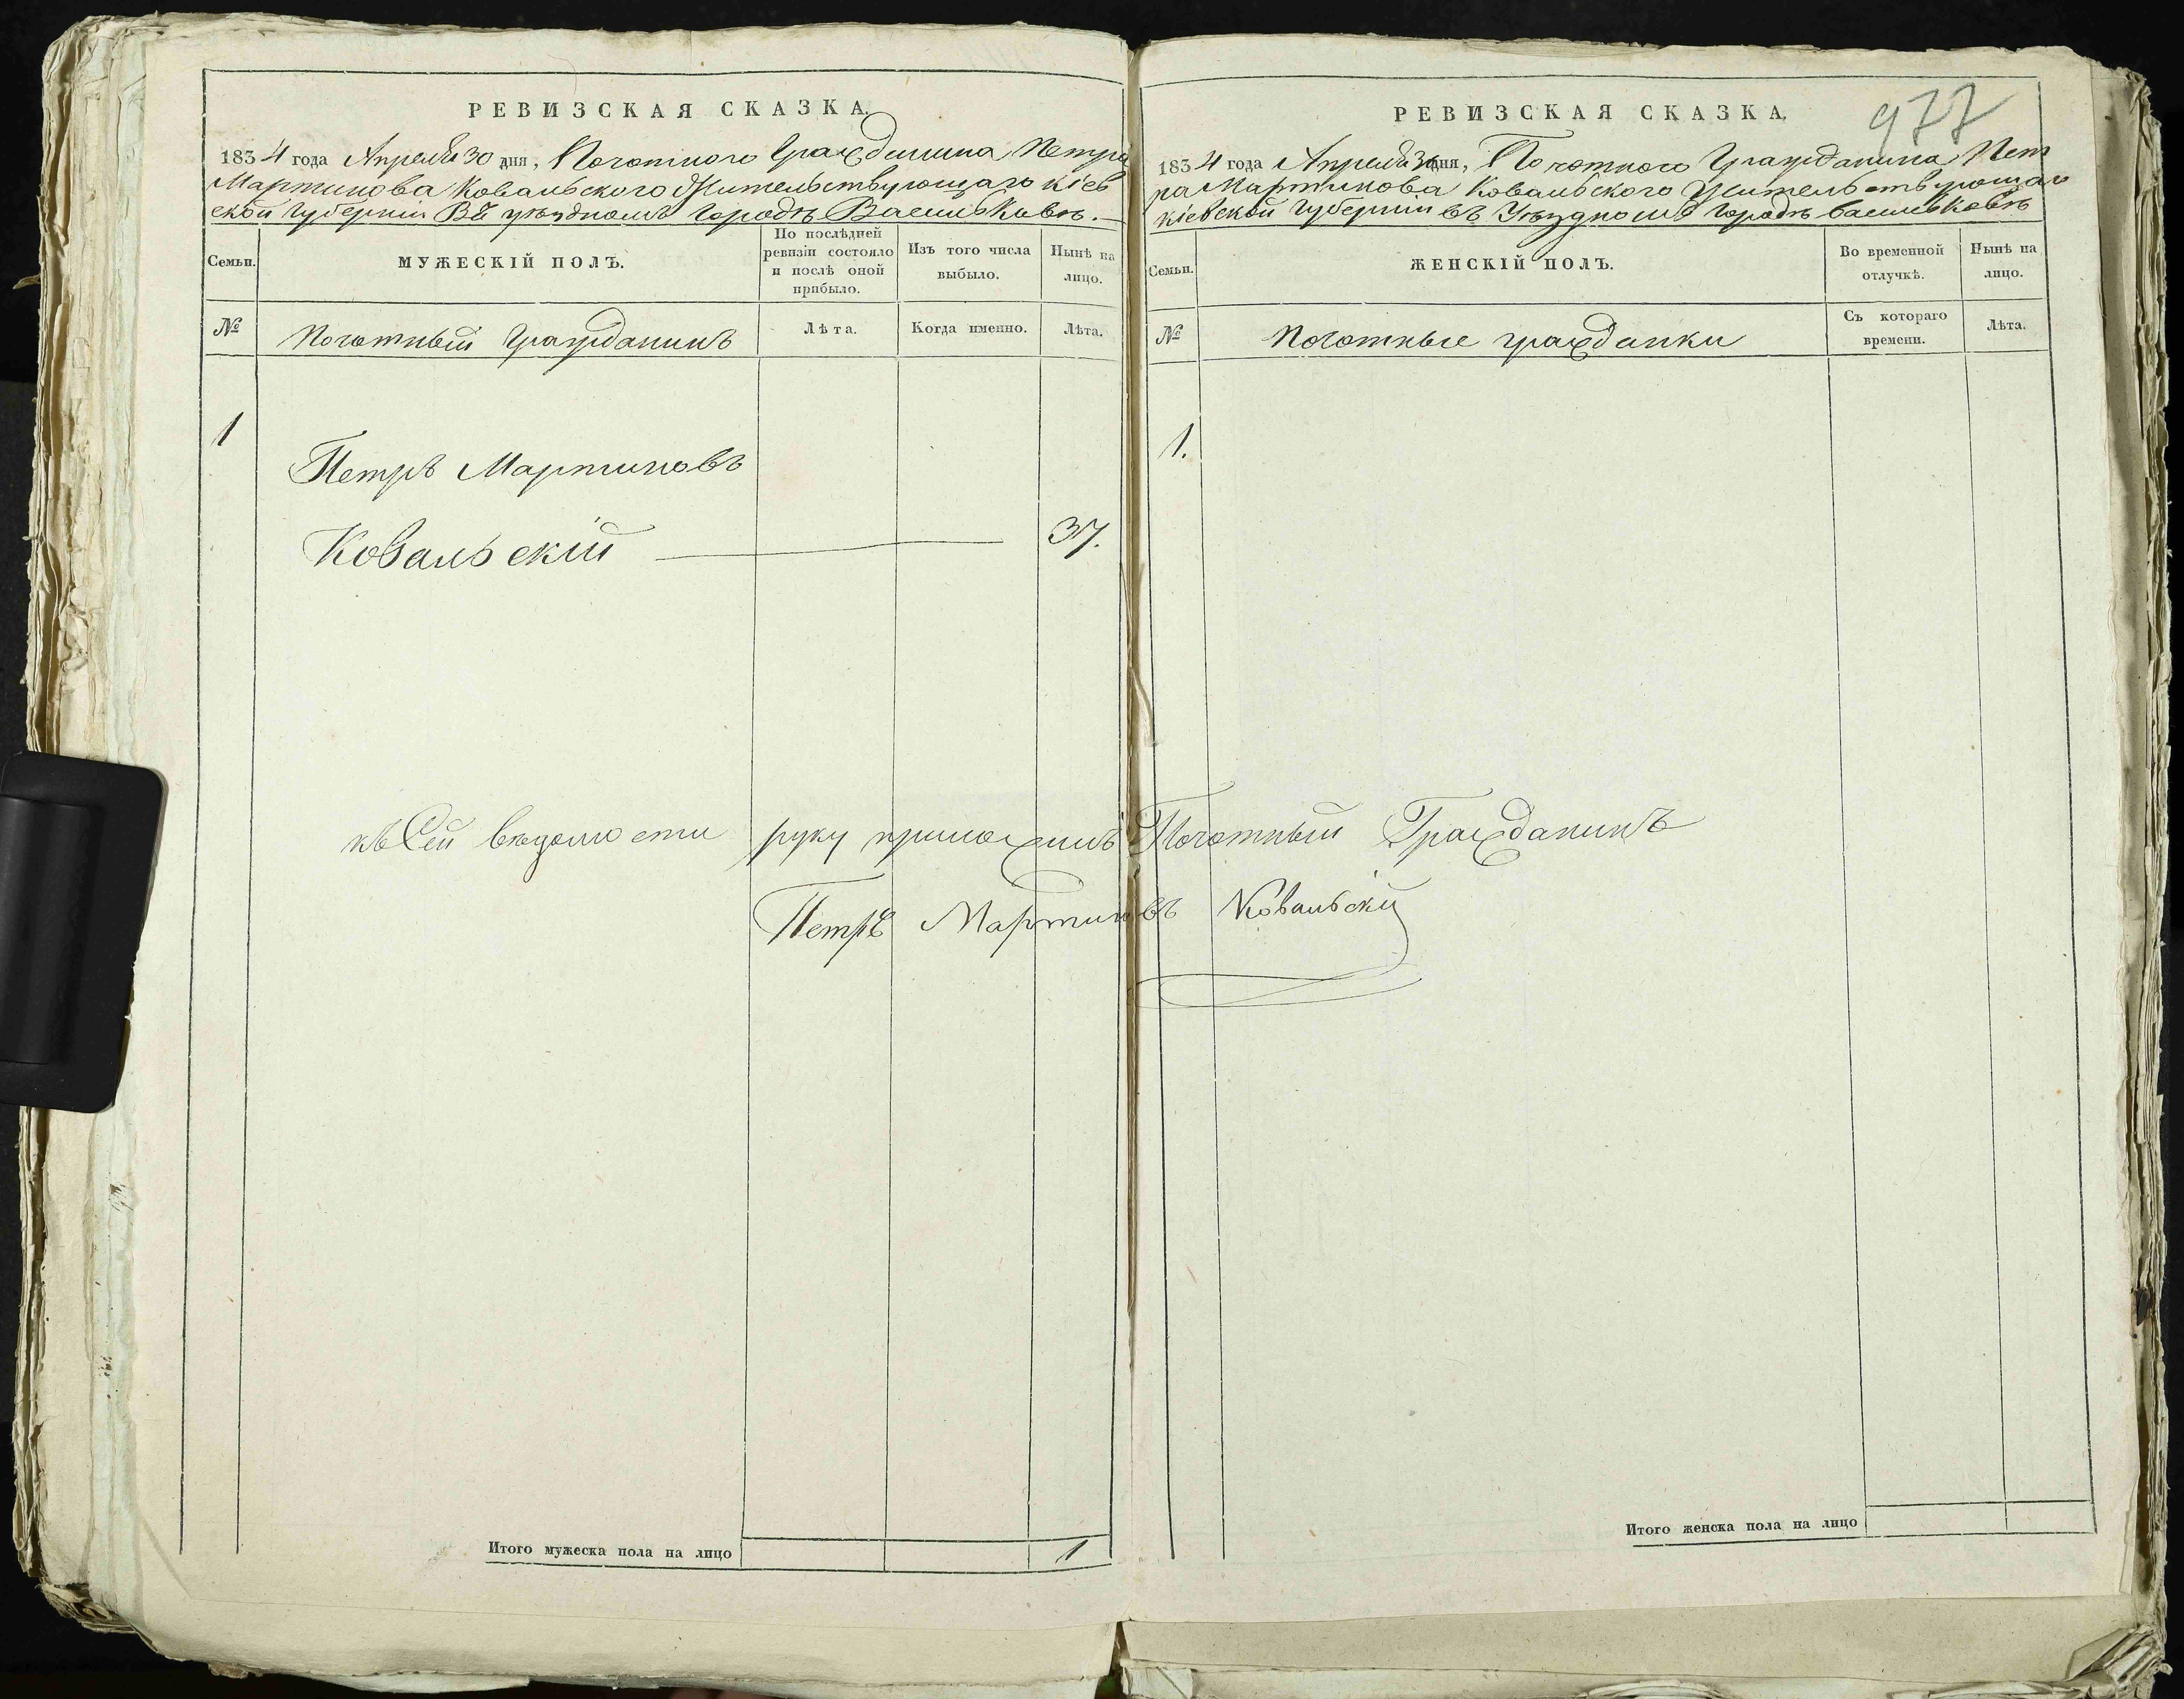 РЕВИЗСКАЯ СКАЗКА.
1834 года Апреля 30 дня, Почотного Гражданина Петра
Мартинова Ковальского Жительствующаго Кіев
ской Губерніи Въ уѣздномъ Городѣ Василькавѣ.
Семьи.
МУЖЕСКІЙ ПОЛЪ.
По послѣдней
ревизіи состояло
и послѣ оной
прибыло.
Изъ того числа
выбыло.
Нынѣ на
лицо.
№
Почотный Гражданинъ
Лѣта.
Когда именно.
Лѣта.
1
Петръ Мартиновъ
Ковальскій
37.
къ Сей вѣдомости руку приложилъ Почотный Гражданинъ
Петръ Мартиновъ Ковальскій
Итого мужеска пола на лицо
1
РЕВИЗСКАЯ СКАЗКА.
977
1834 года Апреля 30 дня, Почотного Гражданина Пет
ра Мартинова Ковальского Жительствующаго
Кіевской Губерніи въ Уѣздномъ Городѣ Василькавѣ
Семьи.
ЖЕНСКІЙ ПОЛЪ.
Во временной
отлучкѣ.
Нынѣ на
лицо.
№
Почотные гражданки
Съ котораго
времени.
Лѣта.
1.
Итого женска пола на лицо